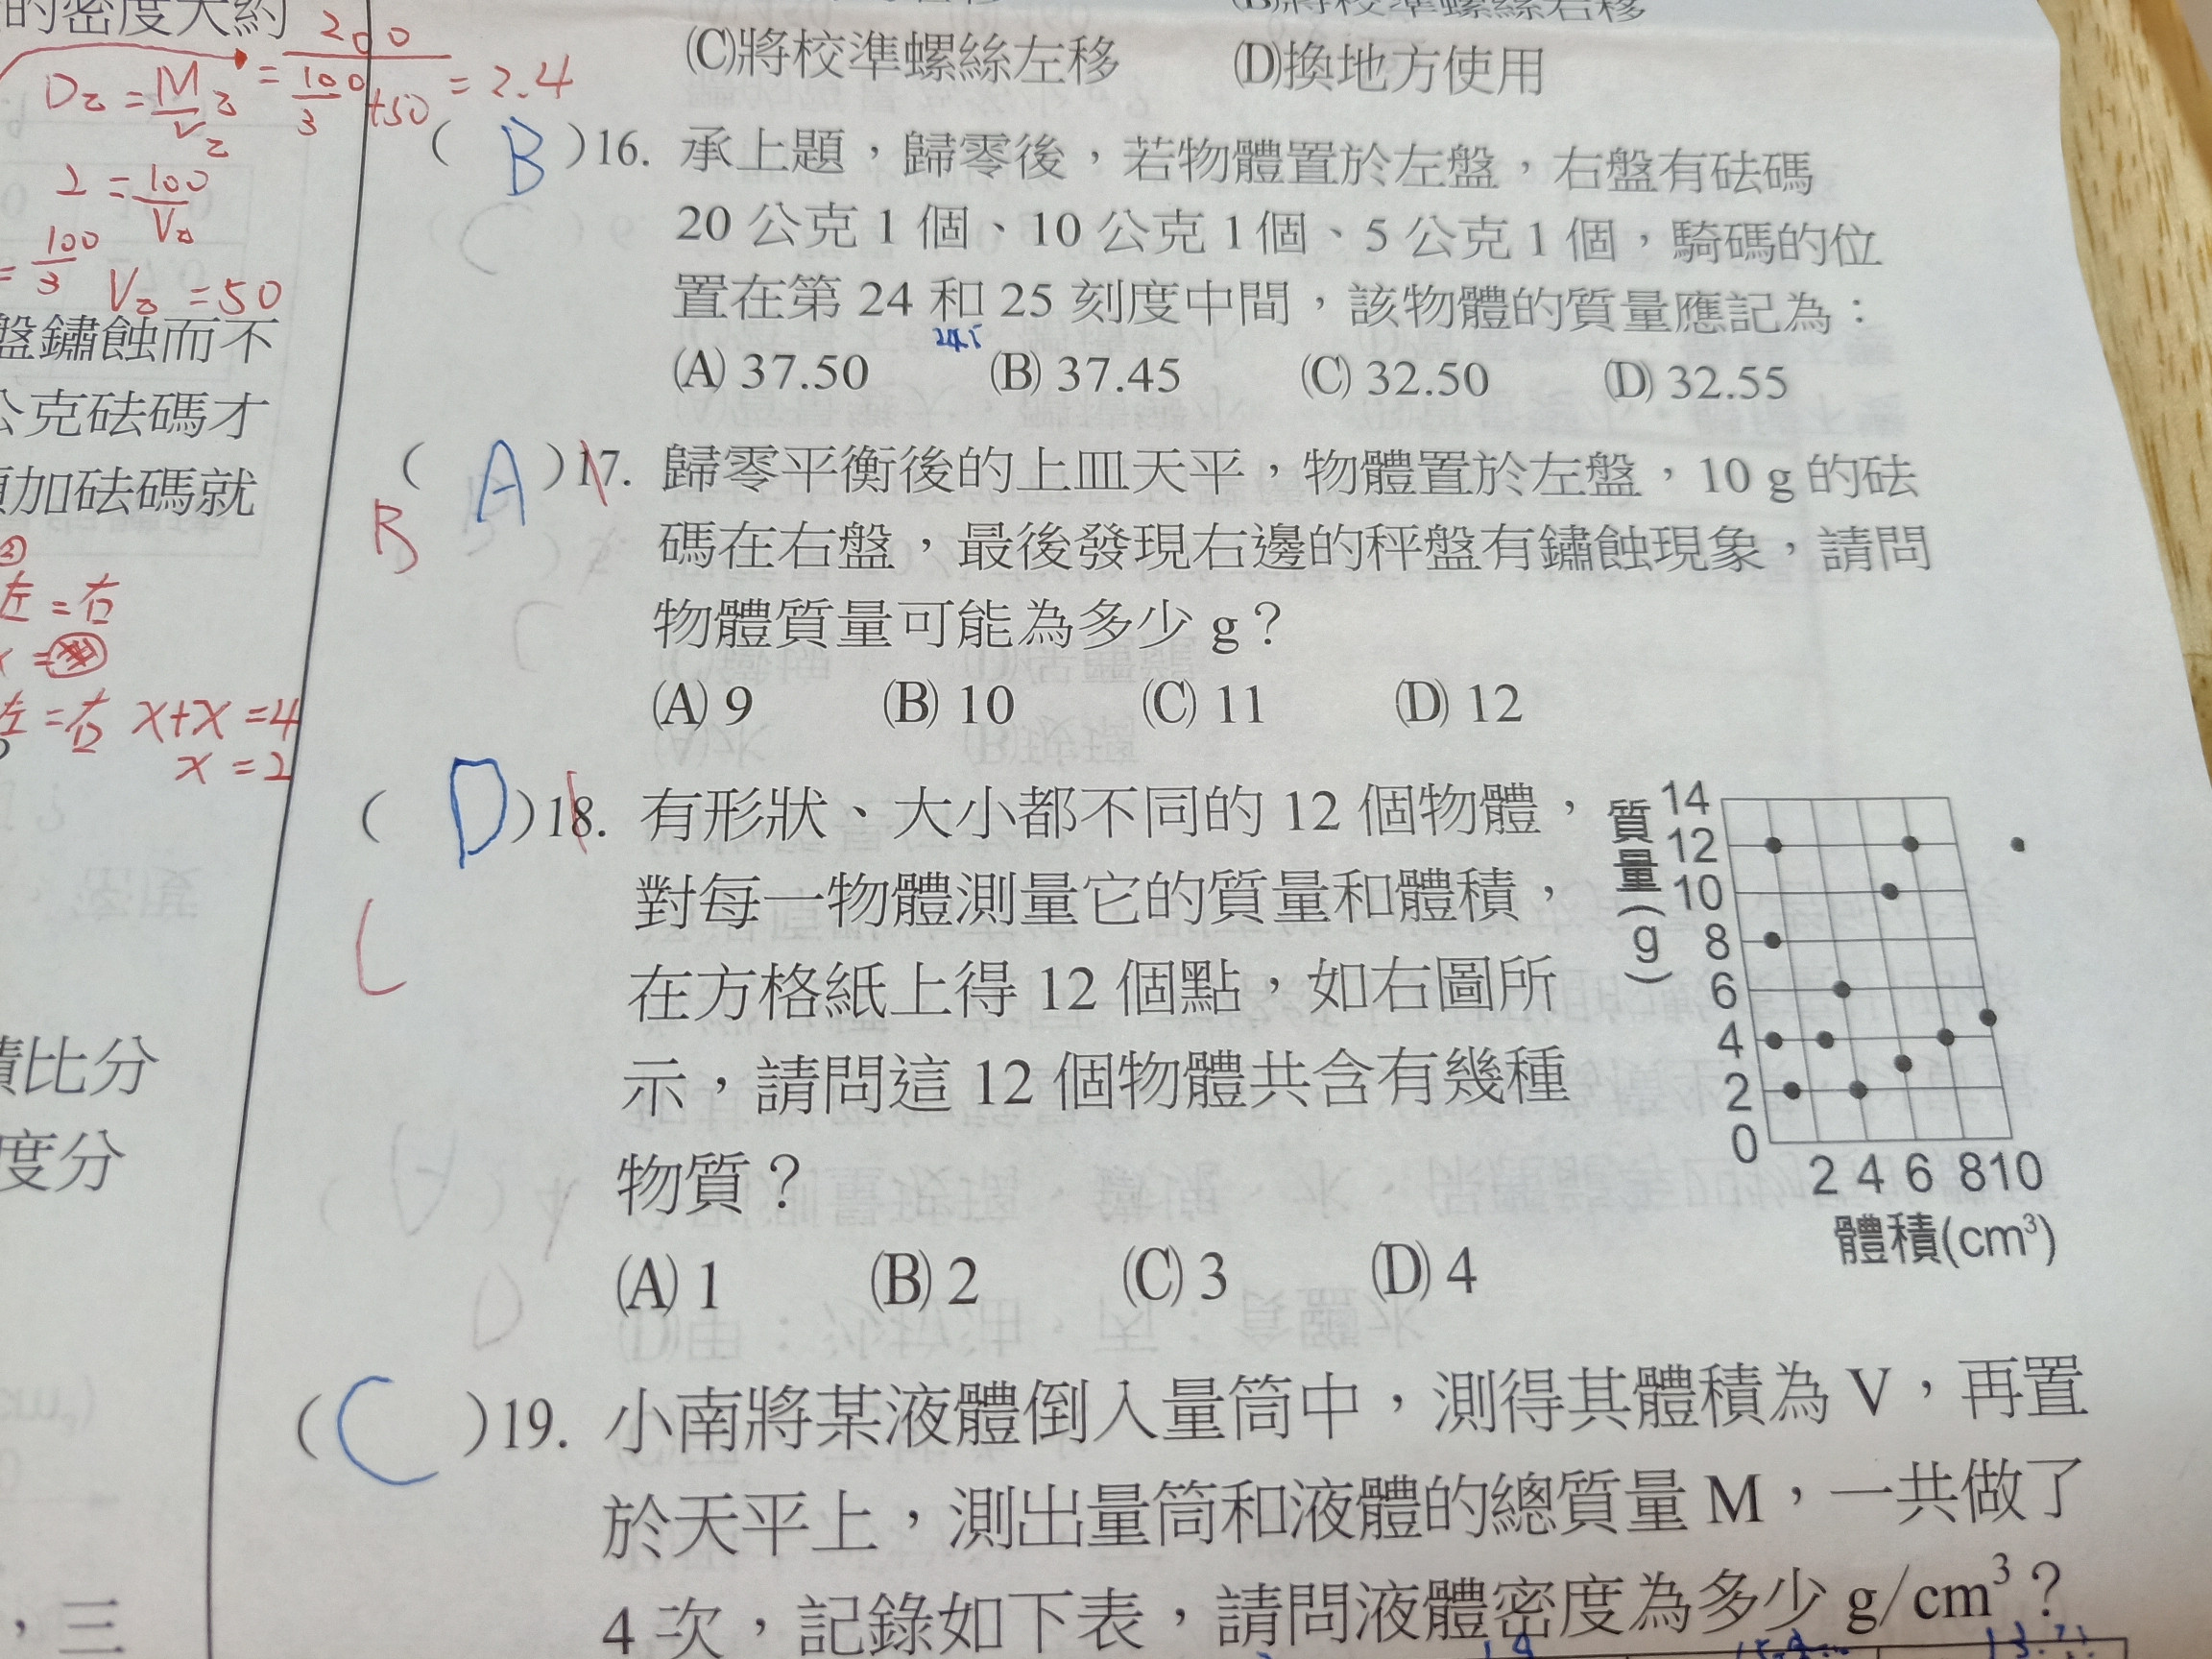 的密度大約
D乙 = M乙/V乙 = 200/(100/3 + 50) = 2.4
2 = 100/V乙
= 100/3 V乙 = 50
盤鏽蝕而不
公克砝碼才
加砝碼就
②
左 = 右
左 = 右 x+x = 4
x = 2
積比分
度分
，三
(B)將校準螺絲右移
(C)將校準螺絲左移 (D)換地方使用
( B )16. 承上題，歸零後，若物體置於左盤，右盤有砝碼
20 公克 1 個、10 公克 1 個、5 公克 1 個，騎碼的位
置在第 24 和 25 刻度中間，該物體的質量應記為：
24.5
(A) 37.50 (B) 37.45 (C) 32.50 (D) 32.55
( A )17. 歸零平衡後的上皿天平，物體置於左盤，10 g 的砝
B
碼在右盤，最後發現右邊的秤盤有鏽蝕現象，請問
物體質量可能為多少 g？
(A) 9 (B) 10 (C) 11 (D) 12
( D )18. 有形狀、大小都不同的 12 個物體，
對每一物體測量它的質量和體積，
C
在方格紙上得 12 個點，如右圖所
示，請問這 12 個物體共含有幾種
物質？
(A) 1 (B) 2 (C) 3 (D) 4
質量(g)
14
12
10
8
6
4
2
0
2 4 6 8 10
體積(cm³)
( C )19. 小南將某液體倒入量筒中，測得其體積為 V，再置
於天平上，測出量筒和液體的總質量 M，一共做了
4 次，記錄如下表，請問液體密度為多少 g/cm³？